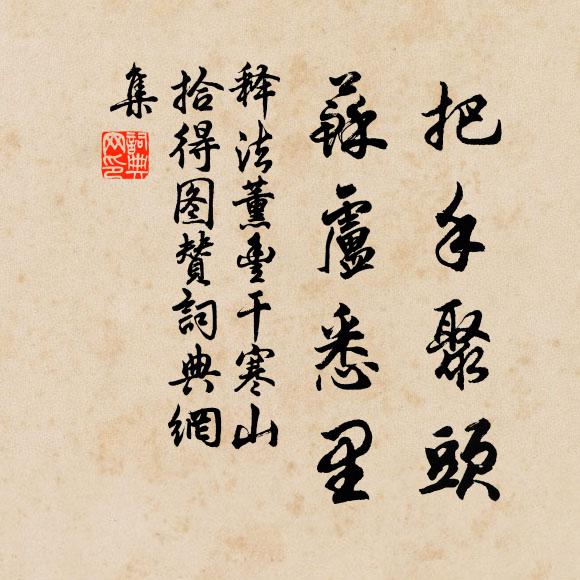 把手聚頭
蘇盧悉里
释法薰豐干寒山
拾得图贊詞典網
集
詞典網印